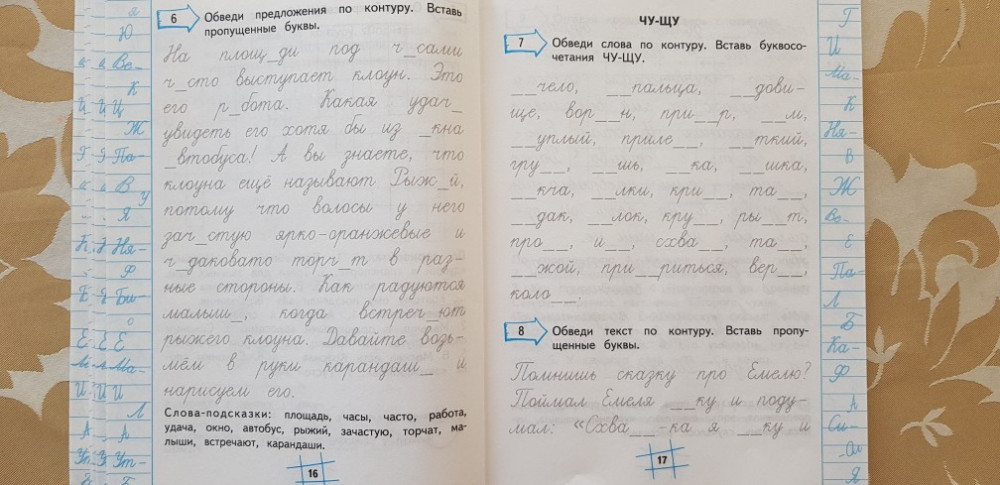 6 Обведи предложения по контуру. Вставь
пропущенные буквы.
На площ_ди под ч_сами
ч_сто выступает клоун. Это
его р_бота. Какая удач_
увидеть его хотя бы из _кна
_втобуса! А вы знаете, что
клоуна ещё называют Рыж_й,
потому что волосы у него
зач_стую ярко-оранжевые и
ч_даковато торч_т в раз-
ные стороны. Как радуются
малыш_, когда встреч_ют
рыжего клоуна. Давайте возь-
мём в руки карандаш_ и
нарисуем его.
Слова-подсказки: площадь, часы, часто, работа,
удача, окно, автобус, рыжий, зачастую, торчат, ма-
лыши, встречают, карандаши.
16
ЧУ-ЩУ
7 Обведи слова по контуру. Вставь буквосо-
четания ЧУ-ЩУ.
__чело, __пальца, __дови-
ще, вор__н, при__р, __м,
__уплый, приле__, __ткий,
гру__, __шь, __ка, __шка,
__кча, __лки, кри__, та__,
__дак, __лок, кру__, ры__т,
про__, и__, схва__, та__,
__жой, при__риться, вер__,
коло__.
8 Обведи текст по контуру. Вставь пропу-
щенные буквы.
Помнишь сказку про Емелю?
Поймал Емеля __ку и поду-
мал: «Схва__-ка я __ку и
17
я
Ю
Ве-
К
Й Й Ц
Ж
Па-
В
у
Я
Ня-
Ф
Би-
о
Ё Ё Ё
Ма-
Й Й Й
Л
А А
Ут-
Г
И
Ма-
К
Ня-
В
Ж
Ве-
Е
Па-
Л
Б
Ка-
Ф
А
Си-
Ол
Я